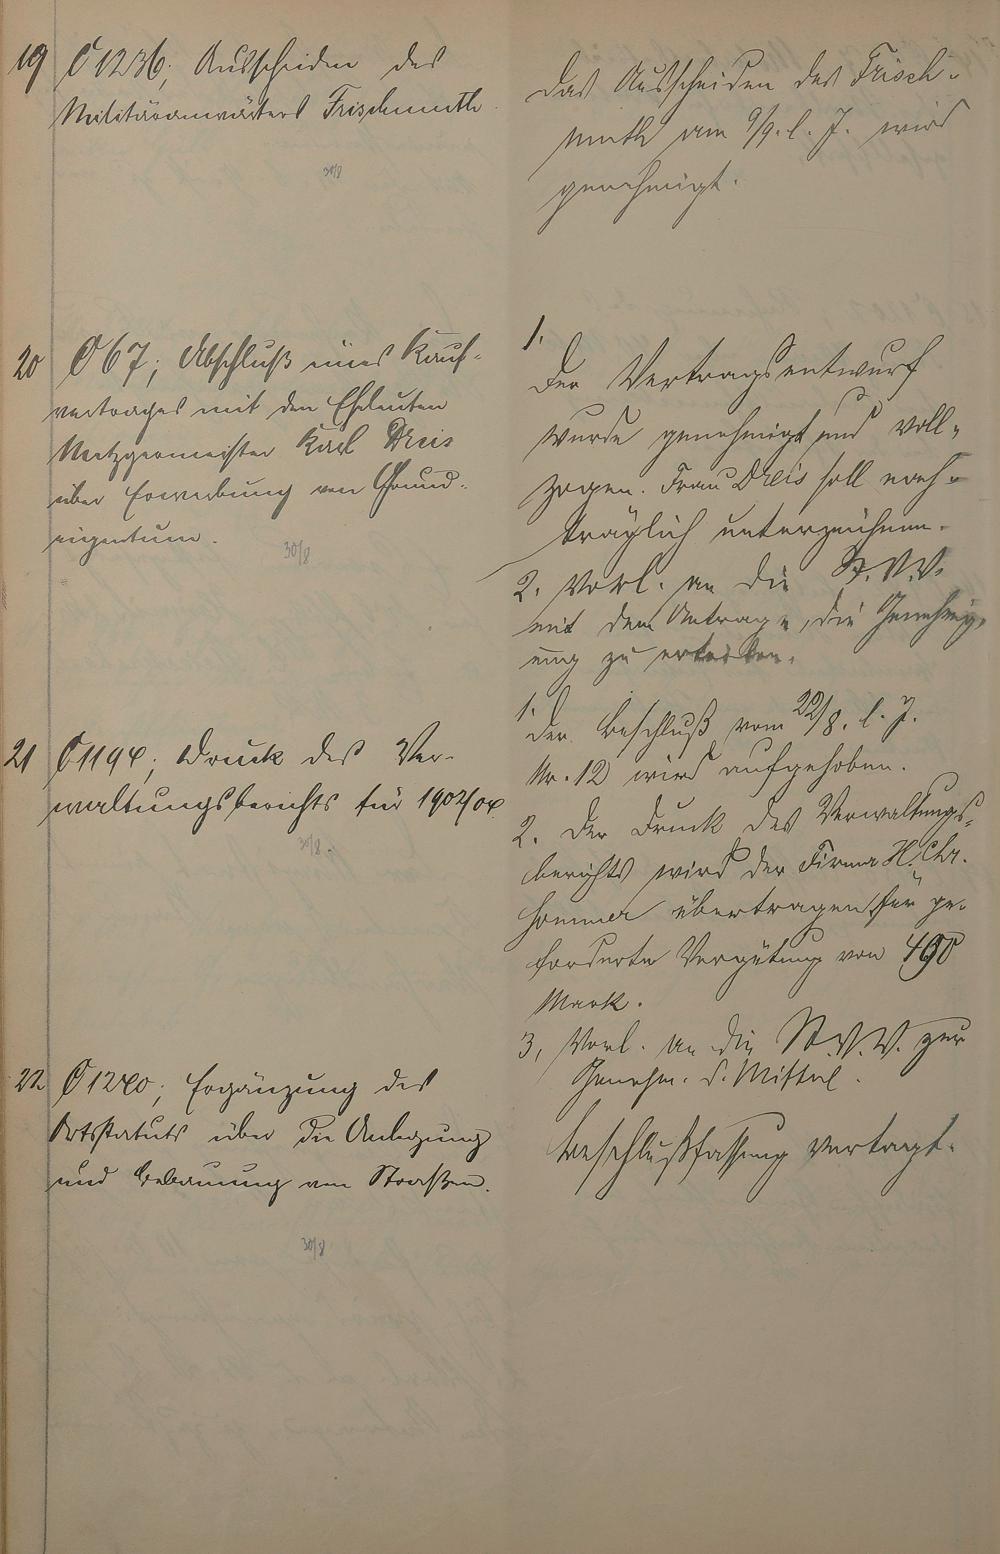 19 O 1236; Ausscheiden des
Militäranwärters Frischmuth
30/8
Das Ausscheiden des Frisch-
muth am 9/9. l. J. wird
genehmigt.
20 O 67; Abschluß eines Kauf-
vertrages mit den Eheleuten
Metzgermeister Karl Dreis
über Erwerbung von Grund-
eigentum.
30/8
1.
Der Vertragsentwurf
wurde genehmigt und voll-
zogen. Frau Dreis soll nach-
träglich unterzeichnen.
2. Vorl. an die St.V.V.
mit dem Antrage, die Genehmig-
ung zu erteilen.
21 O 1194; Druck des Ver-
waltungsberichts für 1902/04
30/8.
1.
Der Beschluß vom 22/8. l. J.
Nr. 12 wird aufgehoben.
2. Der Druck des Verwaltungs-
berichts wird der Firma H. Chr.
Sommer übertragen für ge-
forderte Vergütung von 490
Mark.
3, Vorl. an die St.V.V. zur
Genehm. d. Mittel.
22 O 1240; Ergänzung des
Ortsstatuts über die Anlegung
und Bebauung von Straßen.
30/8
Beschlußfassung vertagt.